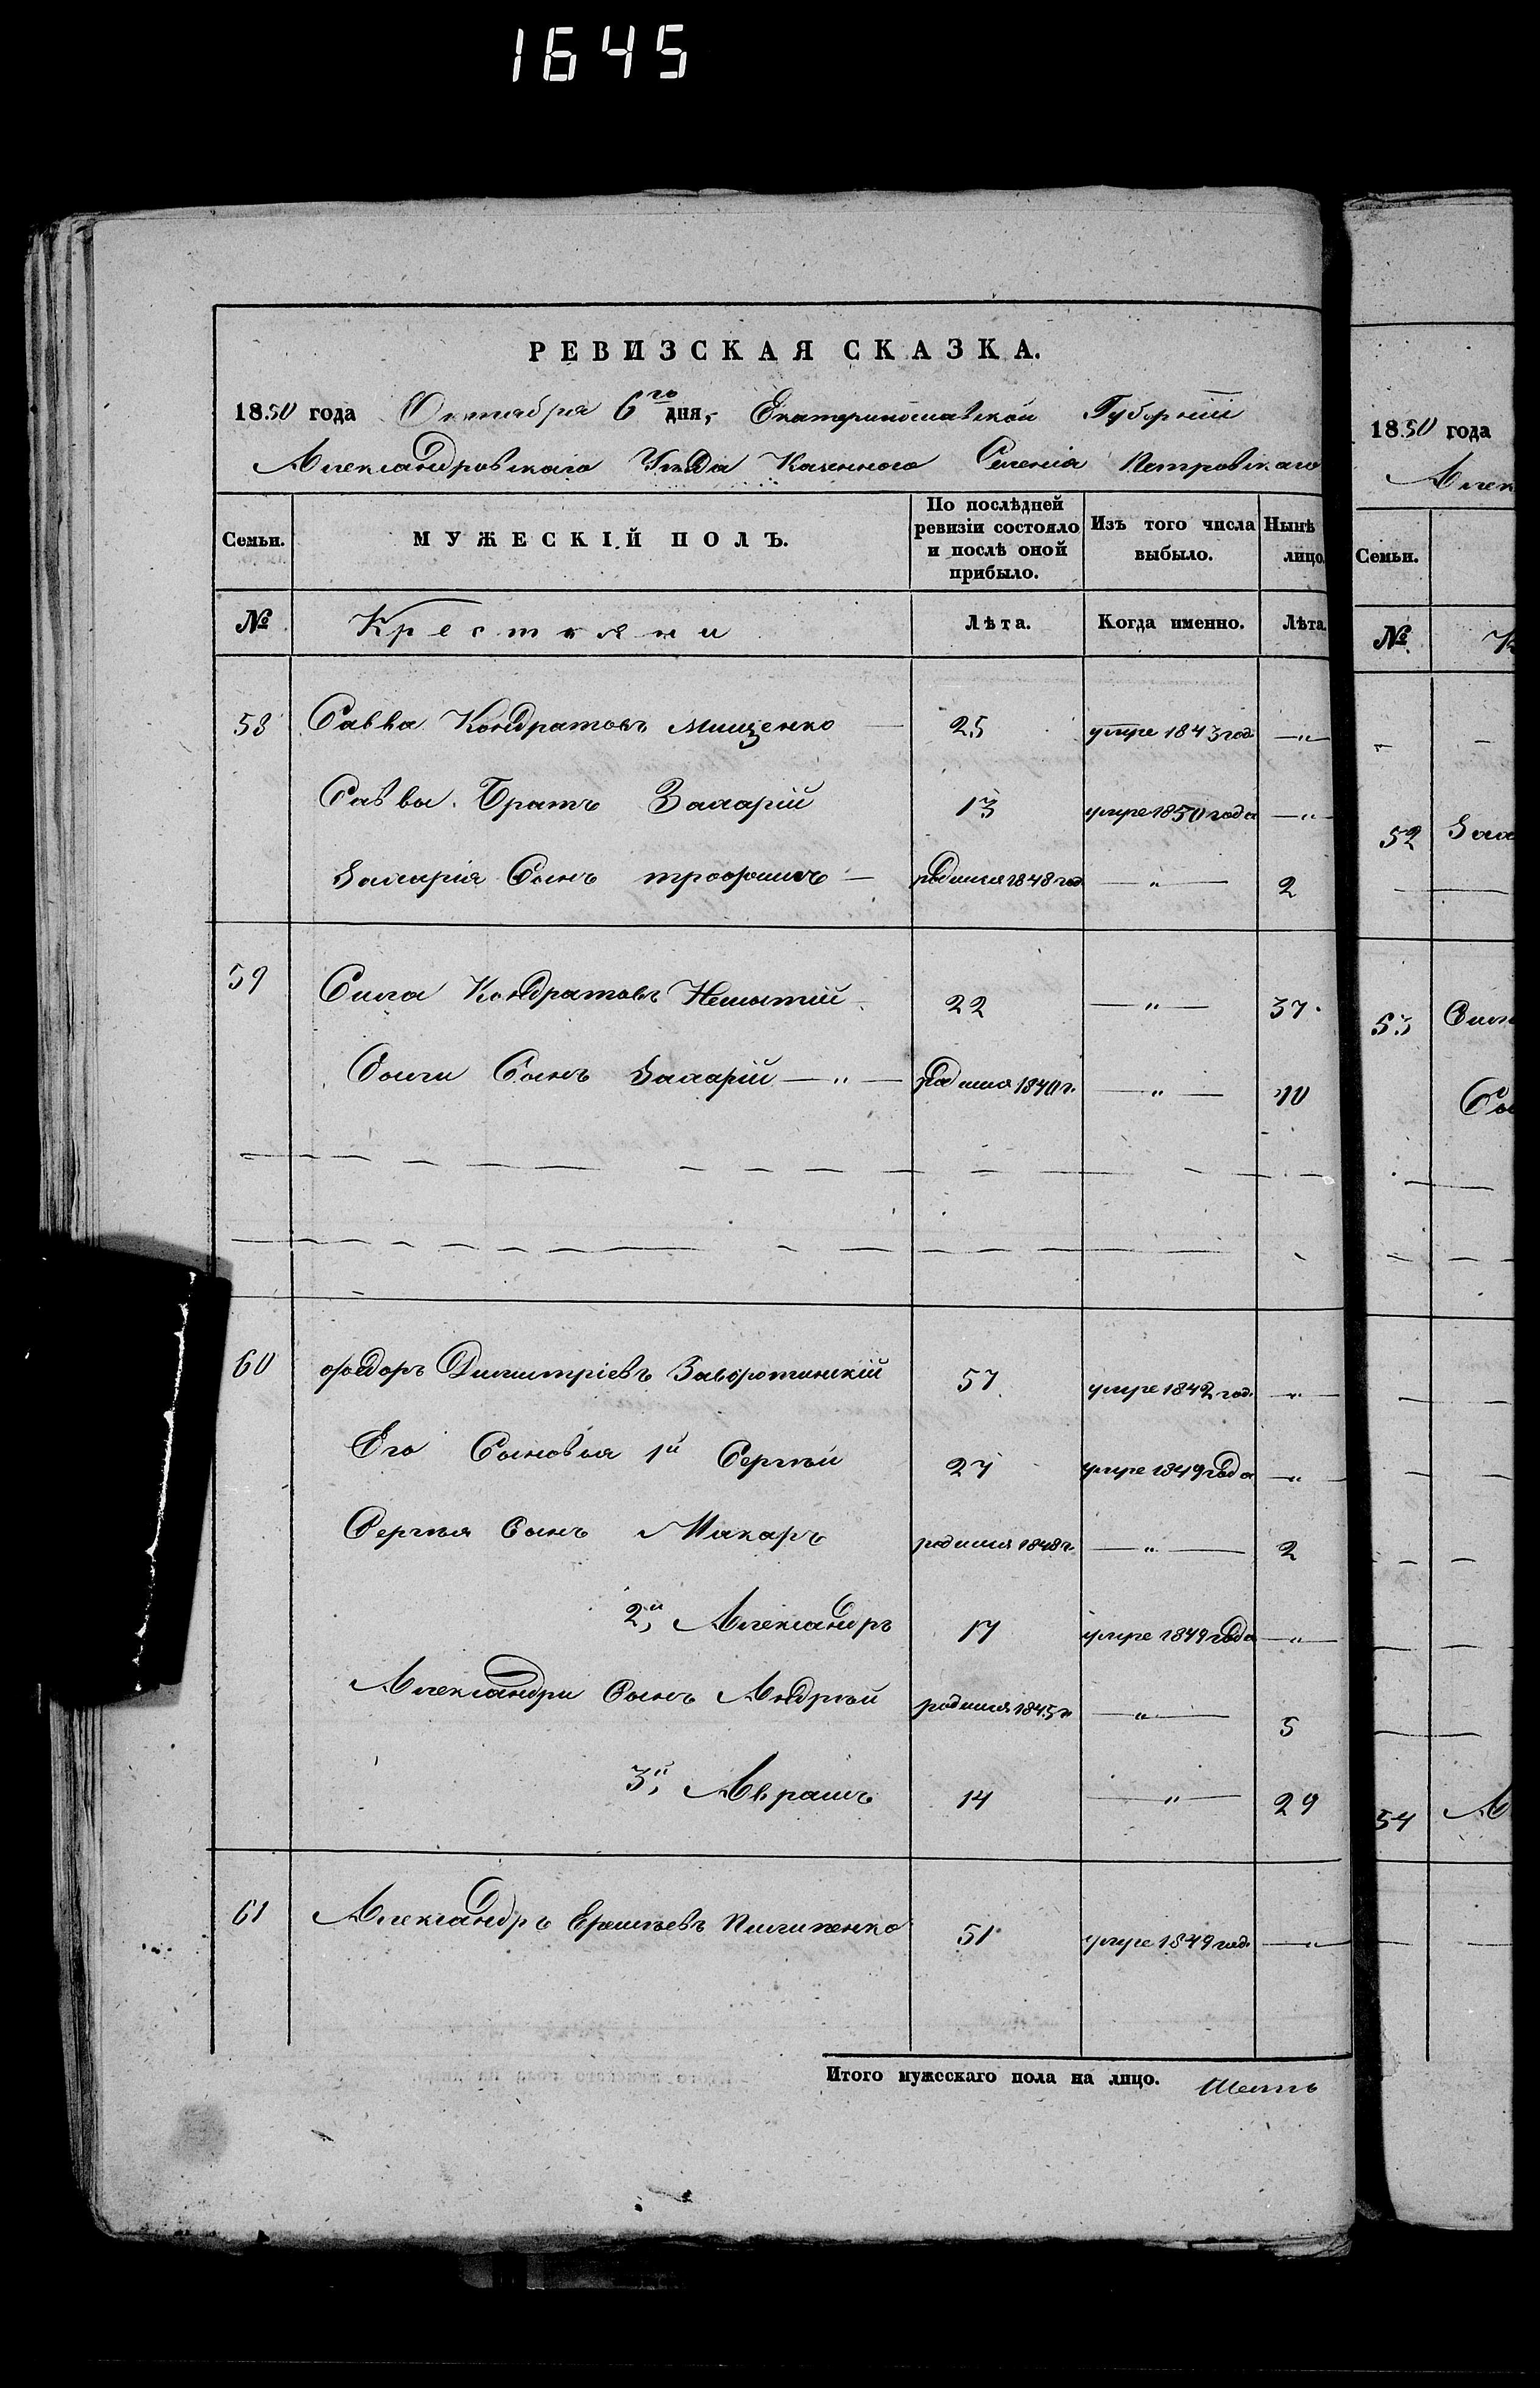 1645
РЕВИЗСКАЯ СКАЗКА.
1850 года Октября 6го дня, Екатеринославской Губерніи
Александровскаго Уѣзда Казенного Селенія Петровскаго
Семьи. МУЖЕСКІЙ ПОЛЪ. По послѣдней ревизіи состояло и послѣ оной прибыло. Изъ того числа выбыло. Нынѣ лицо
№ Крестьяни Лѣта. Когда именно. Лѣта
58 Савва Кондратовъ Мищенко — 25 умре 1843 год. —„—
Саввы Братъ Захарій 13 умре 1850 года —„—
Захарія Сынъ Трофимъ — родился 1848 год —„— 2
59 Сила Кондратовъ 22 —„— 37
Силы Сынъ Захарій —„— родился 1840 г. —„— 10
60 Федоръ Димитріевъ Заворотинскій 57 умре 1842 год. „—
Его Сыновья 1й Сергѣй 27 умре 1849 года —„
Сергѣя Сынъ Макаръ родился 1848 г. —„— 2
2й, Александръ 17 умре 1849 года —„—
Александра Сынъ Андрѣй родился 1845 г. —„— 5
3й, Аврамъ 14 —„— 29
61 Александръ Еремѣевъ Пилипенко 51 умре 1849 год. —„—
Итого мужескаго пола на лицо. Шесть
1850 года
Алек
Семьи.
№ К
52 Заха
53 Сил
Си
54 А